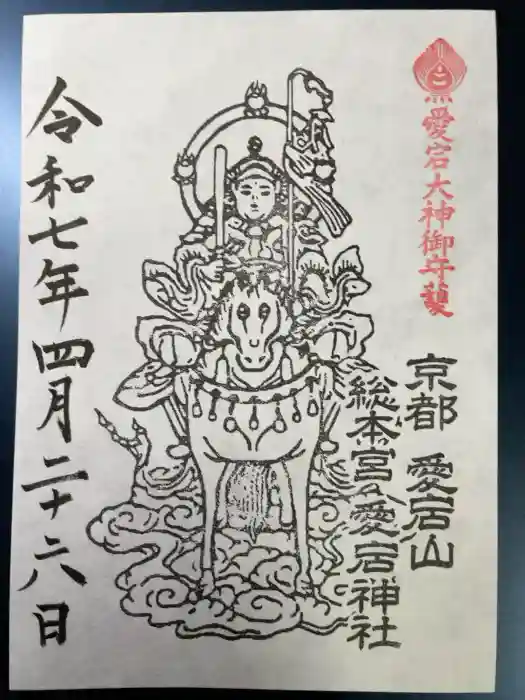 愛宕大神御守護
京都 愛宕山
総本宮 愛宕神社
令和七年四月二十六日